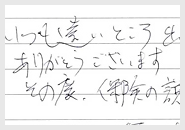 いつも遠いところを
ありがとうございます
その度、保険の説